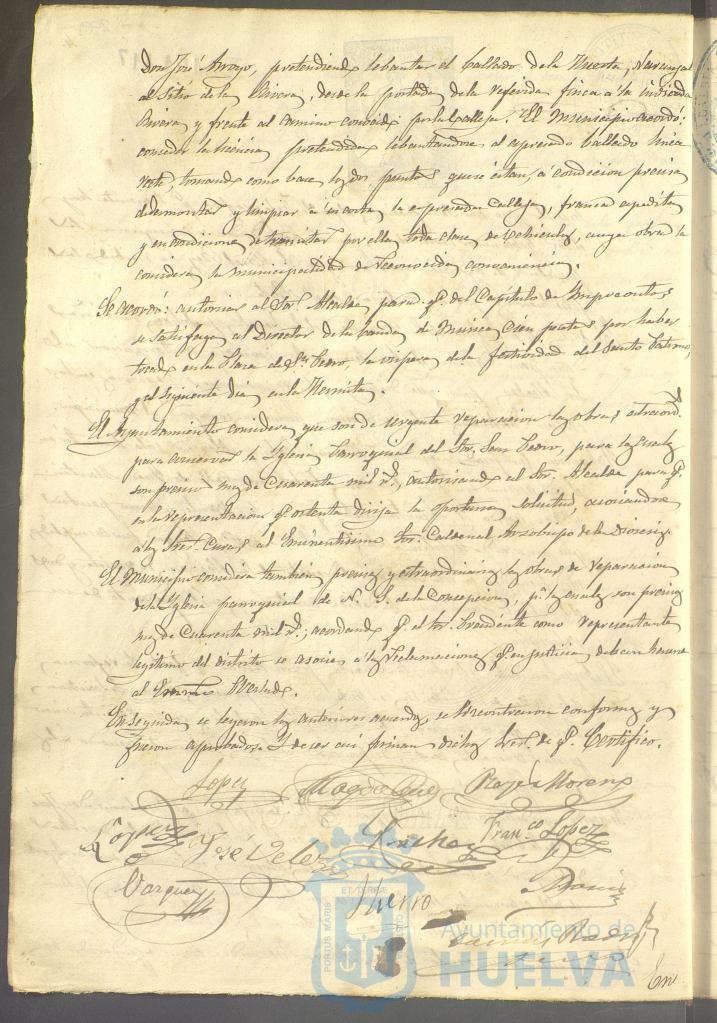 Don José Arroyo, pretendiendo lebantar el ballado de la Huerta, Naranjal
al Sitio de la Rivera, desde la portada de la referida finca a la indicada
Rivera y frente al camino conocido por la Calleja. El Municipio acordó:
conceder la licencia pretendida lebantandose el espresado ballado linea
recta, tomando como base los dos puntos que se citan, a condicion precisa
de desmontar y limpiar a su costa la espresada Calleja, franca espedita
y en condiciones de transitar por ella toda clase de vehiculos, cuya obra la
considera la municipalidad de reconocida conveniencia.
Se acordó: autorizar al Sor. Alcalde para q. del Capítulo de Imprevistos
se satisfaga al Director de la banda de musica Cien pesetas por haber
tocado en la Plaza de Sn. Pedro, la vispera de la festividad del Santo Patrono,
y el siguiente dia en la Hermita.
El Ayuntamiento considera que son de urgente reparacion las obras estraord.
para conservar la Iglesia Parroquial del Sor. San Pedro, para las cuales
son precisos mas de Cuarenta mil r., autorizando al Sor. Alcalde para q.
en la representacion q. ostenta dirija la oportuna solicitud, asociandose
a los Sres. Curas al Eminentisimo Sor. Cardenal Arzobispo de la Diocesis.
El Municipio considera tambien precisas y estraordinarias las obras de reparacion
de la Iglesia parroquial de N. S. de la Concepcion, p. las cuales son precisos
mas de Cuarenta mil r.; acordando q. el Sor. Presidente como representante
legitimo del distrito se asocie a las reclamaciones q. en justicia deban hacerse
al Prelado.
En seguida se leyeron los anteriores acuerdos, se encontraron conformes y
fueron aprobados. Y de ser asi firman dichos Sres. de q. Certifico.
Lopez Magdalena Moreno
Lopez José Velez Franco. Lopez
Vazquez Hierro
ET TERRÆ
PORTUS MARIS
CUSTODIO
Ayuntamiento de
HUELVA
En